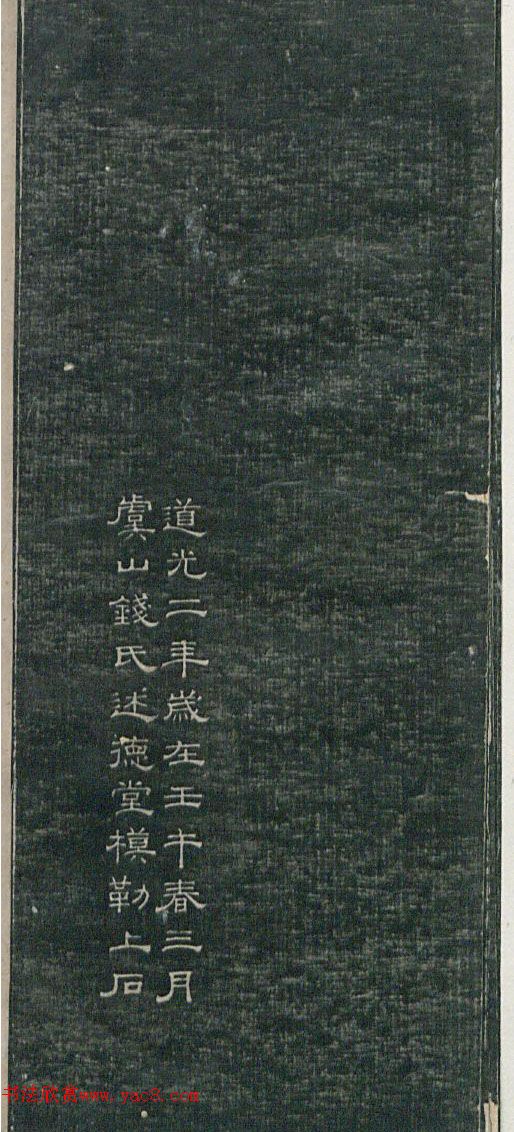 道光二年歲在壬午春三月
虞山錢氏述德堂模勒上石
书法欣赏www.yac8.com